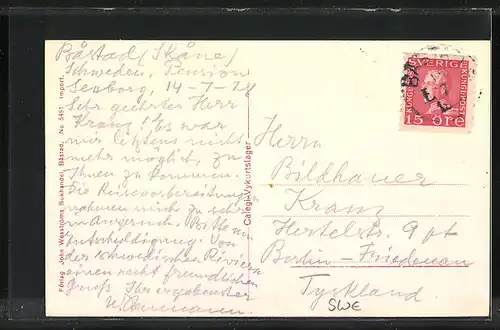 Båstad (Skåne)
Schweden, Pension
14-7-28
Sehr geehrter Herr
Kranz! Es war
mir letztens nicht
mehr möglich, zu
Ihnen zu kommen.
Die Reisevorbereitung
nahmen mich zu sehr
in Anspruch. Bitte um
Entschuldigung. Von
der schwedischen Riviera
einen recht freundlichen
Gruß Ihr ergebenster
Förlag John Wesströms Bokhandel, Båstad. No 5451 Import.
Calegi-Vykortslager
SVERIGE
15 ÖRE
Herrn
Bildhauer
Kranz
Hertelstr. 9 pt
Berlin-Friedenau
Tyskland
SWE